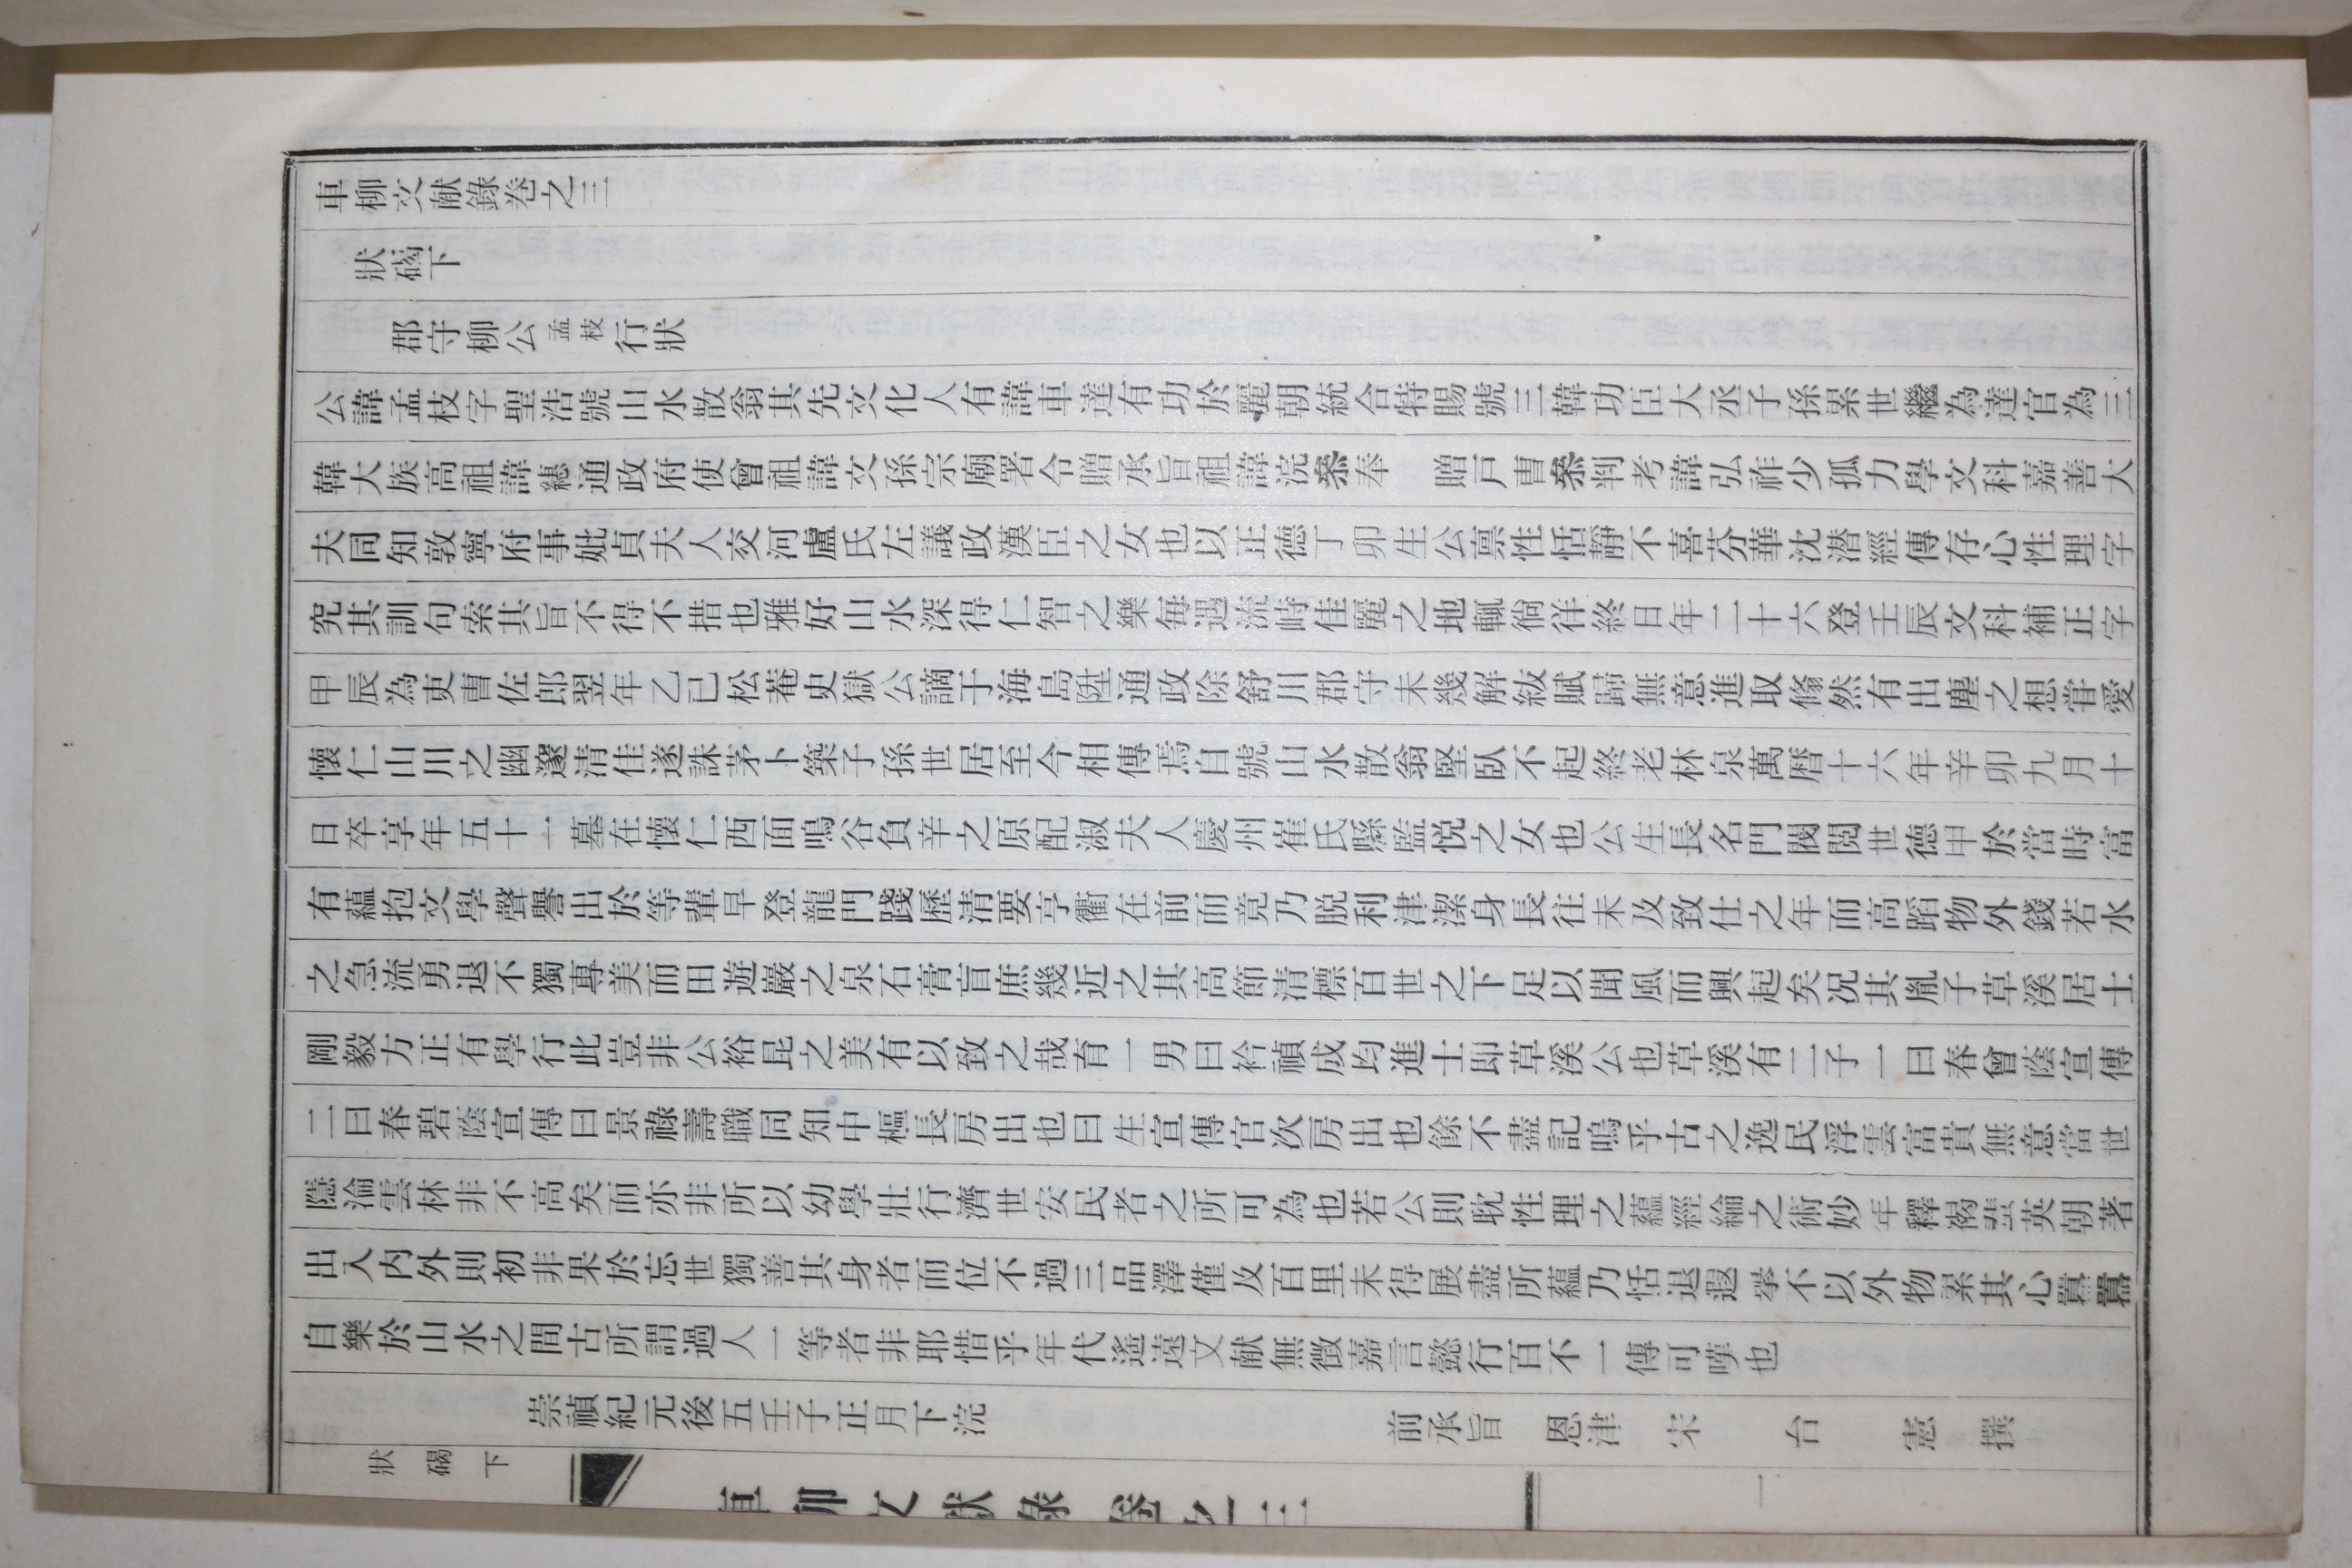 車柳文献錄卷之三
狀碣下
郡守柳公孟枝行狀
公諱孟枝字聖浩號山水散翁其先文化人有諱車達有功於麗朝統合特賜號三韓功臣大丞子孫累世繼為達官為三
韓大族高祖諱繐通政府使曾祖諱文孫宗廟署令贈承旨祖諱浣叅奉 贈戸曹叅判考諱弘祚少孤力學文科嘉善大
夫同知敦寧府事妣貞夫人交河盧氏左議政漢臣之女也以正德丁卯生公禀性恬靜不喜芬華沈潜經傳存心性理字
究其訓句索其旨不得不措也雅好山水深得仁智之樂每遇流峙佳麗之地輒徜徉終日年二十六登壬辰文科補正字
甲辰為吏曹佐郎翌年乙已松菴史獄公謫于海島陞通政除舒川郡守未幾解紱賦歸無意進取翛然有出塵之想甞愛
懐仁山川之幽邃清佳遂誅茅卜築子孫世居至今相傳焉自號山水散翁堅臥不起終老林泉萬曆十六年辛卯九月十
日卒享年五十一墓在懐仁西面鳴谷負辛之原配淑夫人慶州崔氏縣監悦之女也公生長名門閥閲世德甲於當時富
有蘊抱文學聲譽出於等輩早登龍門踐歷清要亨衢在前而竟乃脱利津潔身長往未及致仕之年而高蹈物外錢若水
之急流勇退不獨專美而田遊巖之泉石膏肓庶幾近之其高節清標百世之下足以聞風而興起矣况其胤子草溪居士
剛毅方正有學行此豈非公裕昆之美有以致之哉育一男曰衿禎成均進士即草溪公也草溪有二子一曰春曾蔭宣傳
二曰春碧蔭宣傳曰景祿壽職同知中樞長房出也曰生宣傳官次房出也餘不盡記嗚乎古之逸民浮雲富貴無意當世
隱淪雲林非不高矣而亦非所以幼學壯行濟世安民者之所可為也若公則耽性理之蘊經綸之術妙年釋褐蜚英朝著
出入内外則初非果於忘世獨善其身者而位不過三品澤僅及百里未得展盡所蘊乃恬退遐擧不以外物累其心囂囂
自樂於山水之間古所謂過人一等者非耶惜乎年代遙遠文献無徵嘉言懿行百不一傳可嘆也
崇禎紀元後五壬子正月下浣 前承旨 恩津 宋 台 憲 撰
狀碣下
車柳文献錄 卷之三 一